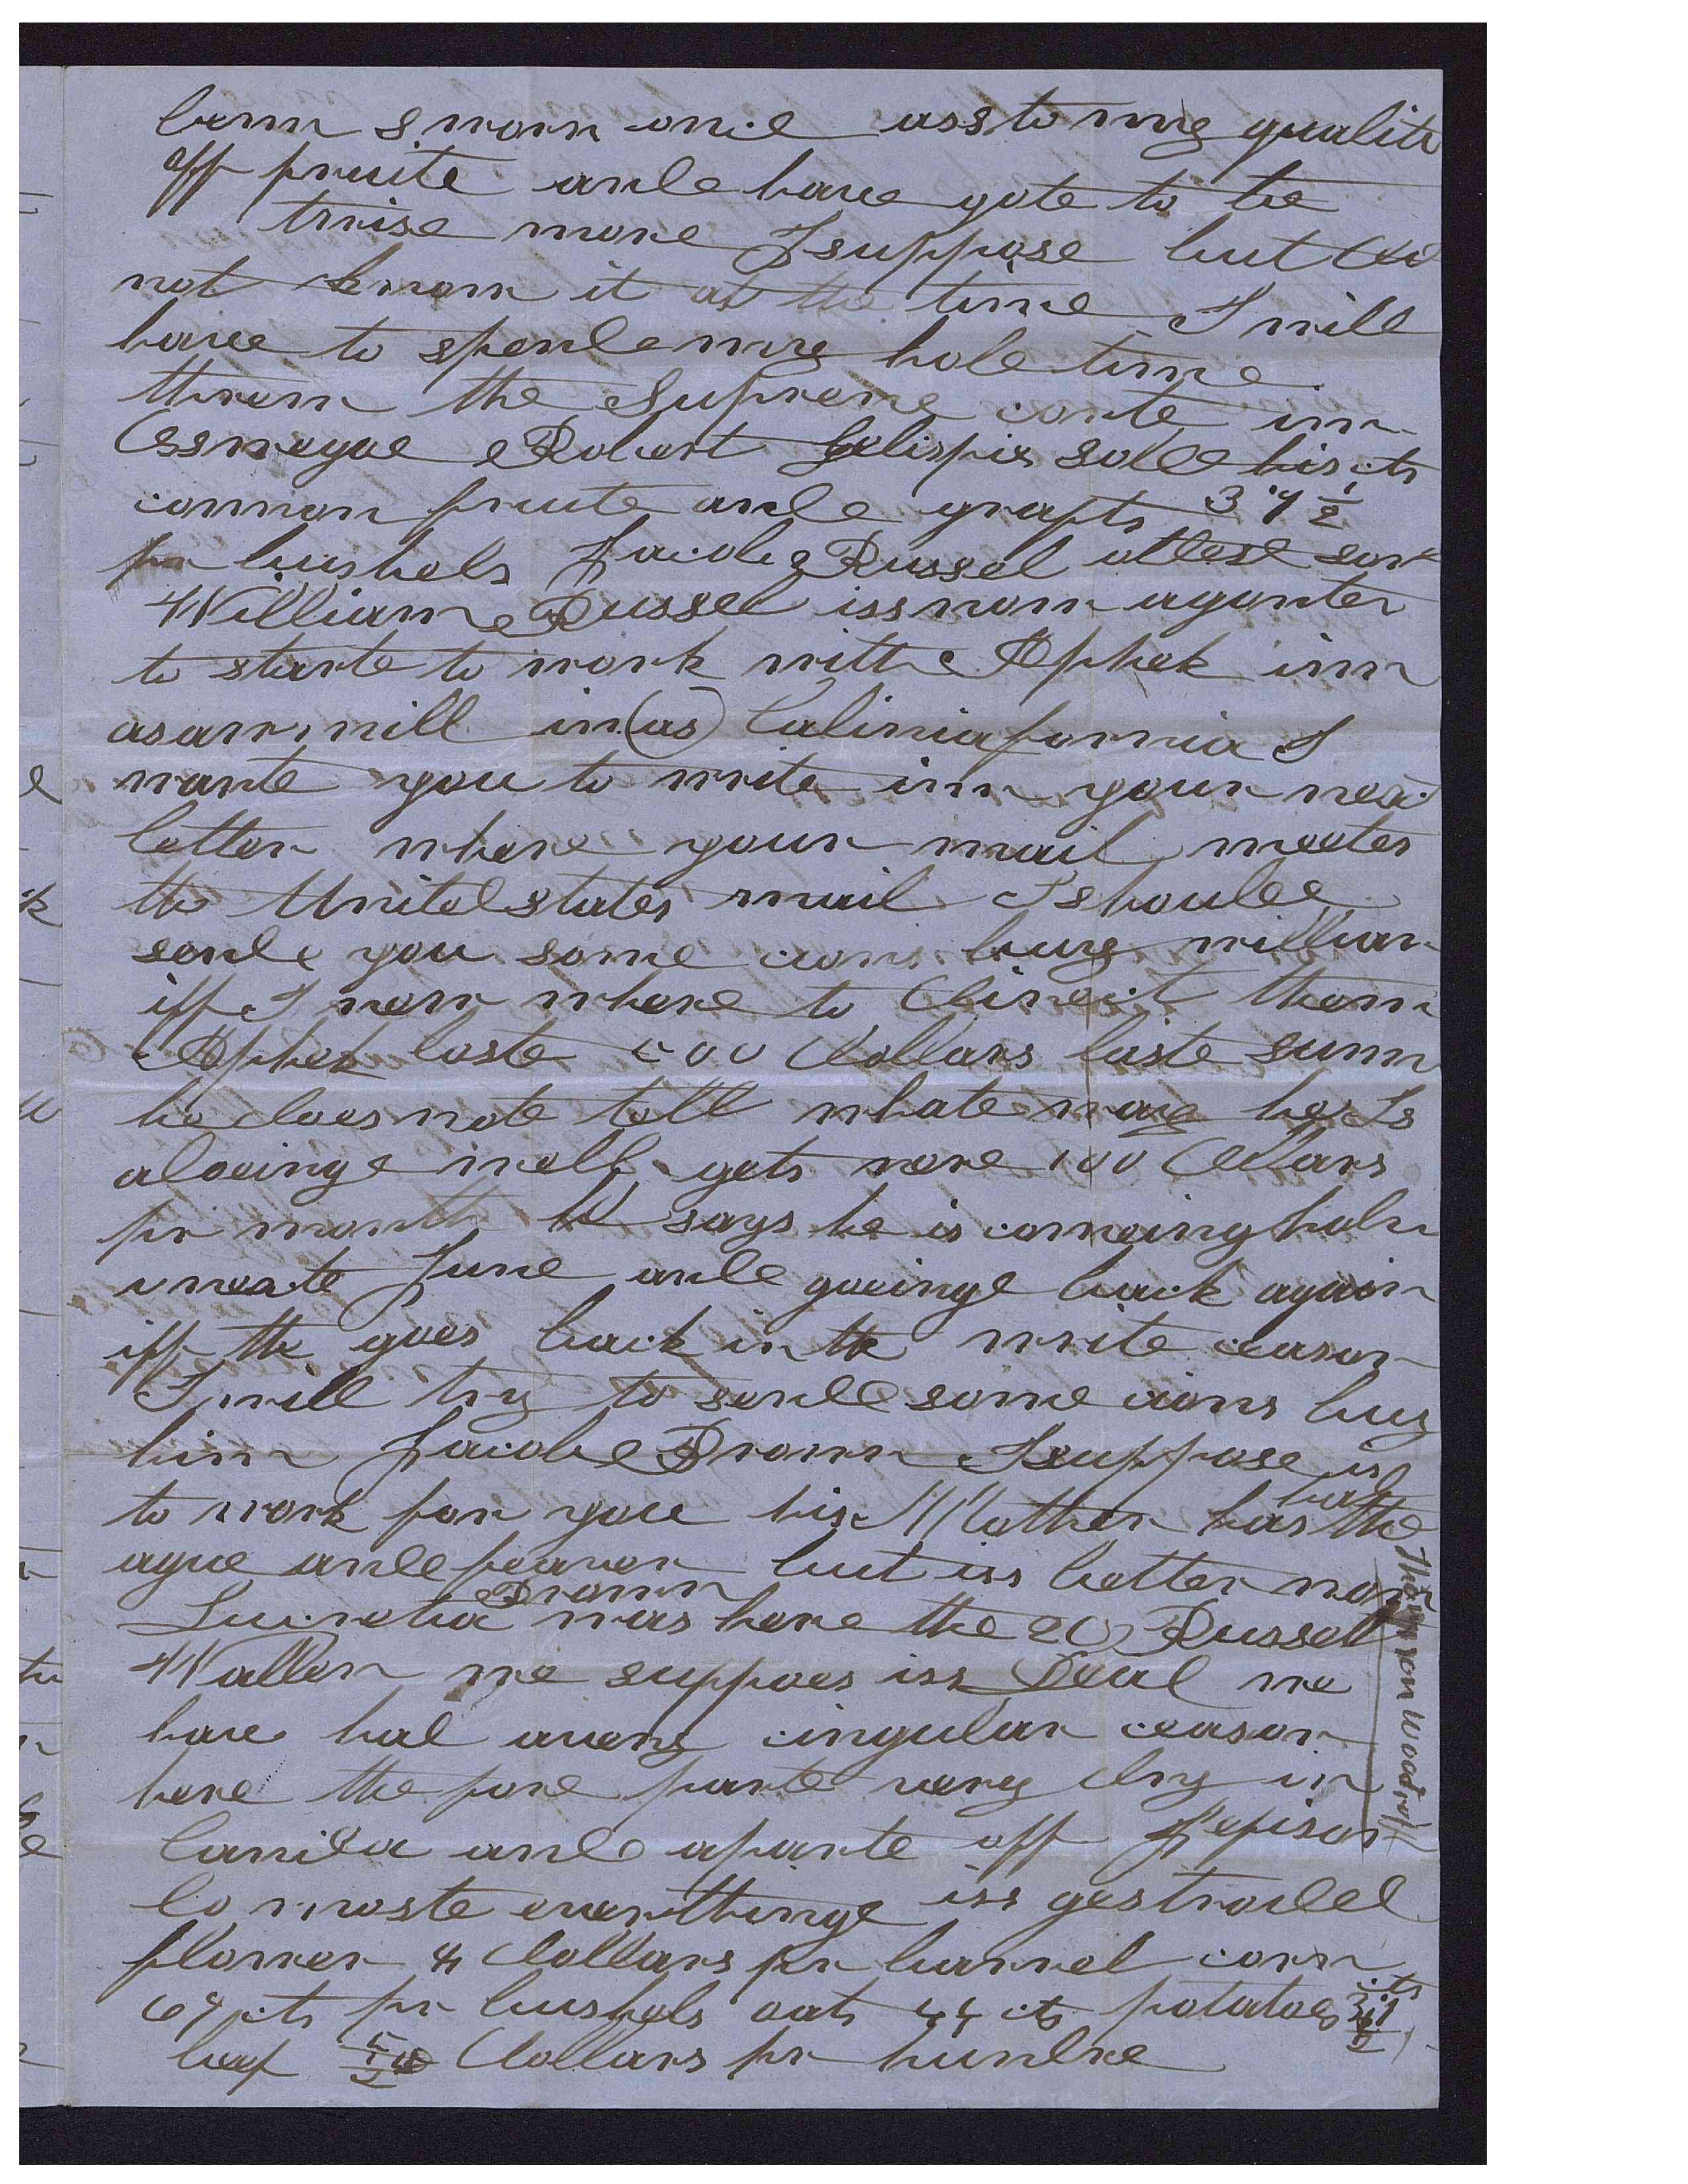 benn sworn once ass to mye qualite
off fruite ande have gote to be
twise more I suppose but did
not know it at the time I will
have to spende mye hole time
throw the Supreme corte inn
Osswegoe Robert Gelispie solde his cts
common fruite ande grafts 37 1/2
pr bushels Jacob Russel oldest son
William Russel iss now agonter
to starte to work with Ephek inn
asaw mill in (as) Caliniafornia I
wante you to write inn your next
letter where your mail meetes
the Unitedstates mail I shoulde
sende you some cions buy william
iff I now where to direct them
Ephek loste 500 dollars laste summ
he does note tell whate waye he Is
adoeinge well gets nere 100 dollars
pr month he says he is comeing hohn
nexte June ande goeinge back again
iff the goes back in the write ceason
I will try to sende some cions buy
him Jacobe Brown I suppose is
to work for you his Mother has had the
ague ande feaver but iss better now
Lucretia Brown was here the 20 Russel
Waller we suppoes iss Dead we
have had avery cingular ceason
here the fore parte very dry in
Canida ande aparte off Jefison
Co moste everythinge iss gestroded
flower 8 dollars pr barrel corn
69 cts pr bushels oats 44 cts potatoes 37 1/2 cts
beef 5 1/2 dollars pr hundre
Thompson Woodruff